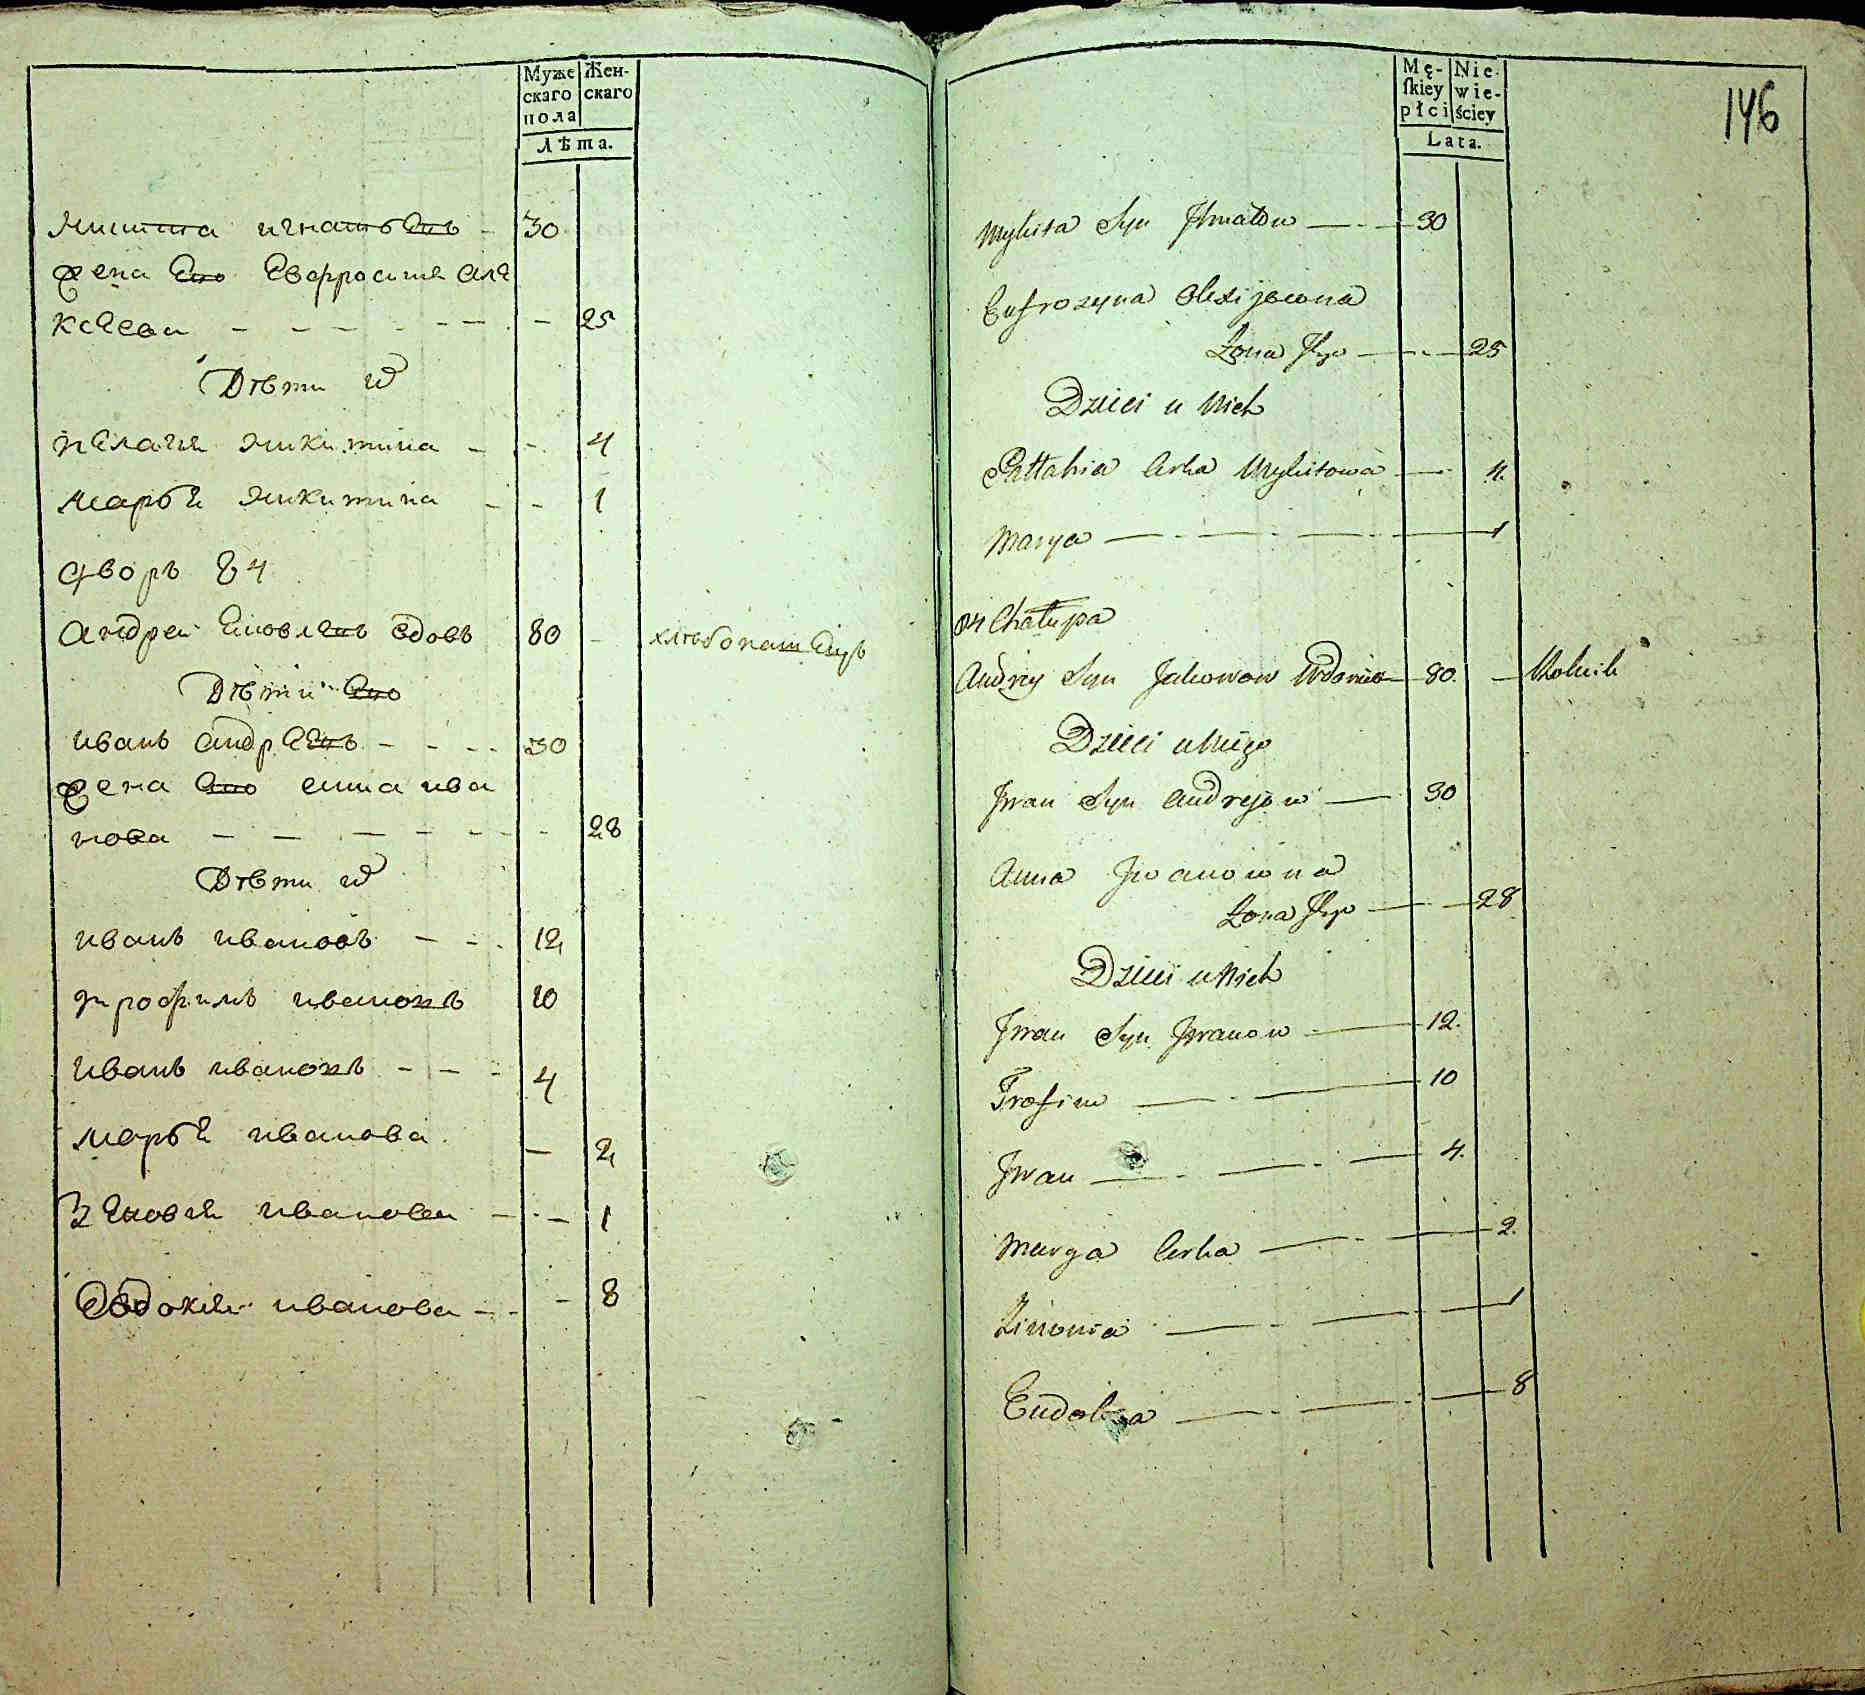 Муже
скаго
пола
Жен-
скаго
Лѣта.
Микита игнатьевъ - 30
жена Его Евфросиня але
ксеева - - - - - - 25
Дѣти их
пелагея микитина - - 4
марья микитина - - 1
дворъ 84
андрей Яковлевъ вдовъ 80 - хлѣбопашецъ
Дѣти Его
иванъ андреевъ - - - 30
жена Его анна ива
нова - - - - - - 28
Дѣти их
иванъ ивановъ - - - 12
трофимъ ивановъ 10
иванъ ивановъ - - - 4
марья иванова - 2
Зеновия иванова - - - 1
Евдокия иванова - - - 8
Mę-
ſkiey
płci
Nie-
wie-
ściey
Lata.
146
Mykita Syn Ihnatow — 30
Eufrozyna Olexijowna
Żona Jego — 25
Dzieci u Nich
Pallahia Corka Mykitowa — 4.
Marya — 1
84 Chałupa
Andrzey Syn Jakowow Wdowiec — 80. — Rolnik
Dzieci u Niego
Jwan Syn Andrejow — 30
Anna Jwanowna
Żona Jego — 28
Dzieci u Nich
Jwan Syn Jwanow — 12.
Trofim — 10
Jwan — 4.
Marya Corka — 2.
Zinowia — 1
Eudokya — 8